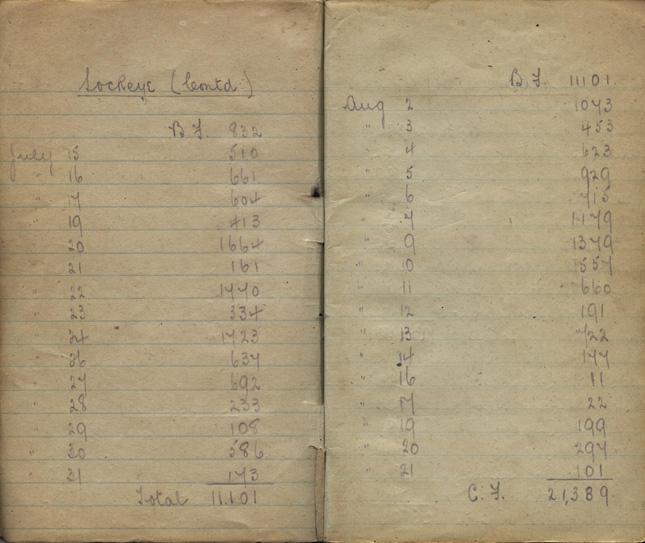 Sockeye (Contd)
B.F. 832
July 15 510
" 16 661
" 17 604
" 19 413
" 20 1664
" 21 161
" 22 1770
" 23 334
" 24 1723
" 26 637
" 27 692
" 28 233
" 29 108
" 30 586
" 31 173
Total 11.101
B.F. 11101
Aug 2 1073
" 3 453
" 4 623
" 5 929
" 6 715
" 7 1179
" 9 1379
" 10 1557
" 11 660
" 12 191
" 13 722
" 14 177
" 16 11
" 17 22
" 19 199
" 20 297
" 21 101
C.F. 21,389